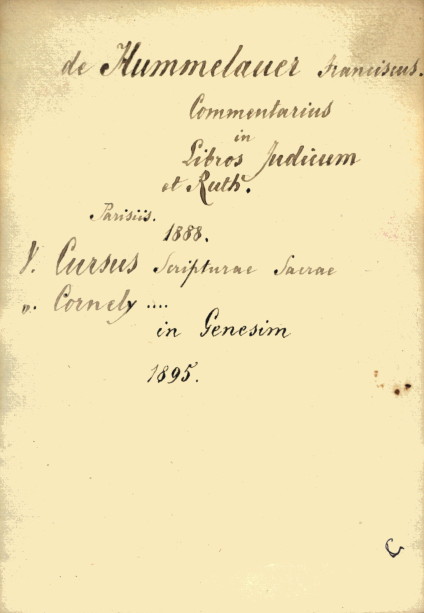 de Hummelauer Franciscus.
Commentarius
in
Libros Judicum
et Ruth.
Parisiis.
1888.
V. Cursus Scripturae Sacrae
v. Cornely ....
in Genesim
1895.